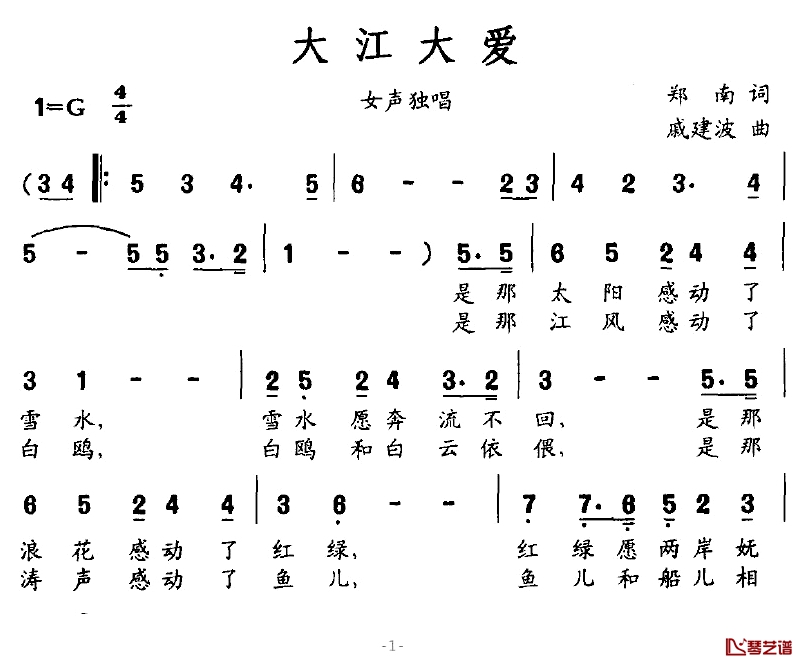 大江大爱
1=G 4/4 女声独唱 郑南词
戚建波曲
(3 4 |: 5 3 4· 5 | 6 - - 2 3 | 4 2 3· 4 |
5 - 5 5 3· 2 | 1 - - ) 5· 5 | 6 5 2 4 4 |
是那太阳感动了
是那江风感动了
3 1 - - | 2 5 2 4 3· 2 | 3 - - 5· 5 |
雪水, 雪水愿奔流不回, 是那
白鸥, 白鸥和白云依偎, 是那
6 5 2 4 4 | 3 6 - - | 7 7· 6 5 2 3 |
浪花感动了红绿, 红绿愿两岸妩
涛声感动了鱼儿, 鱼儿和船儿相
-1-
琴艺谱